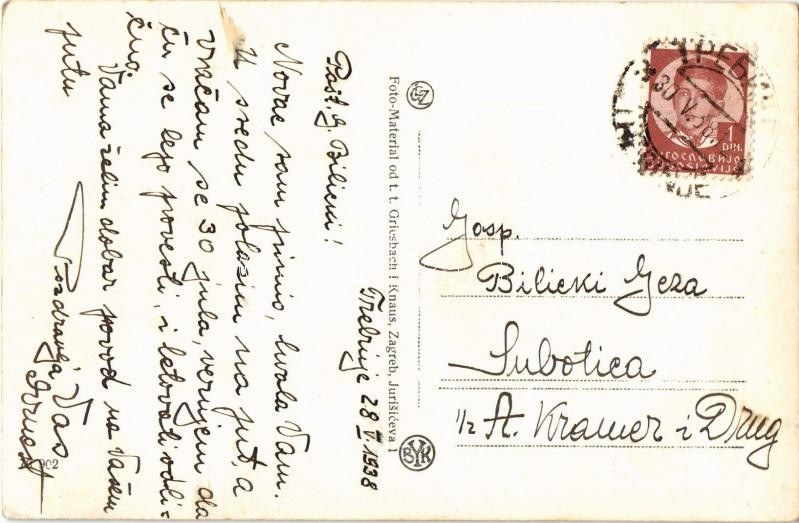 Trebinje 28 V 1938
Pošt. g. Bilicki!
Novac sam primio, hvala Vam.
U sredu polazim na put, a
vraćam se 30 jula, verujem da
ću se lepo provesti, i letovati odli-
čno.
Vama želim dobar provod na Vašem
putu
Pozdravlja Vas
Ernest
902
Foto-Material od t. t. Griesbach i Knaus, Zagreb, Jurišićeva 1
ТРЕБИЊЕ
30 V 38
TREBINJE
1
DIN.
ЈУГОСЛАВИЈА
JUGOSLAVIJA
Gosp.
Bilicki Geza
Subotica
½ A. Kramer i Drug